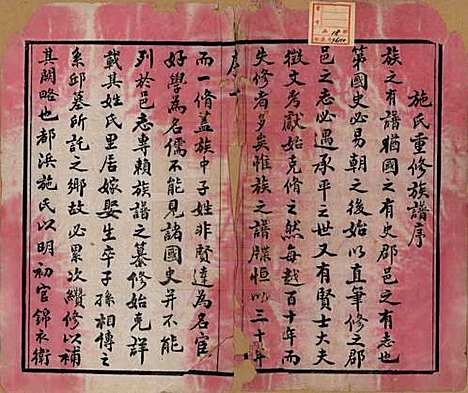 施氏重修族譜序
族之有譜猶國之有史郡邑之有志也
第國史必易朝之後始以直筆修之郡
邑之志必遇承平之世又有賢士大夫
徵文考獻始克脩之然每越百十年而
失修者多矣惟族之譜牒恒以三十年
序一
而一脩蓋族中子姓非賢達為名宦
好學為名儒不能見諸國史并不能
列於邑志專賴族譜之纂修始克詳
載其姓氏里居嫁娶生卒子孫相傳之
系邱墓所託之鄉故必累次纘修以補
其闕略也都浜施氏以明初官錦衣衛